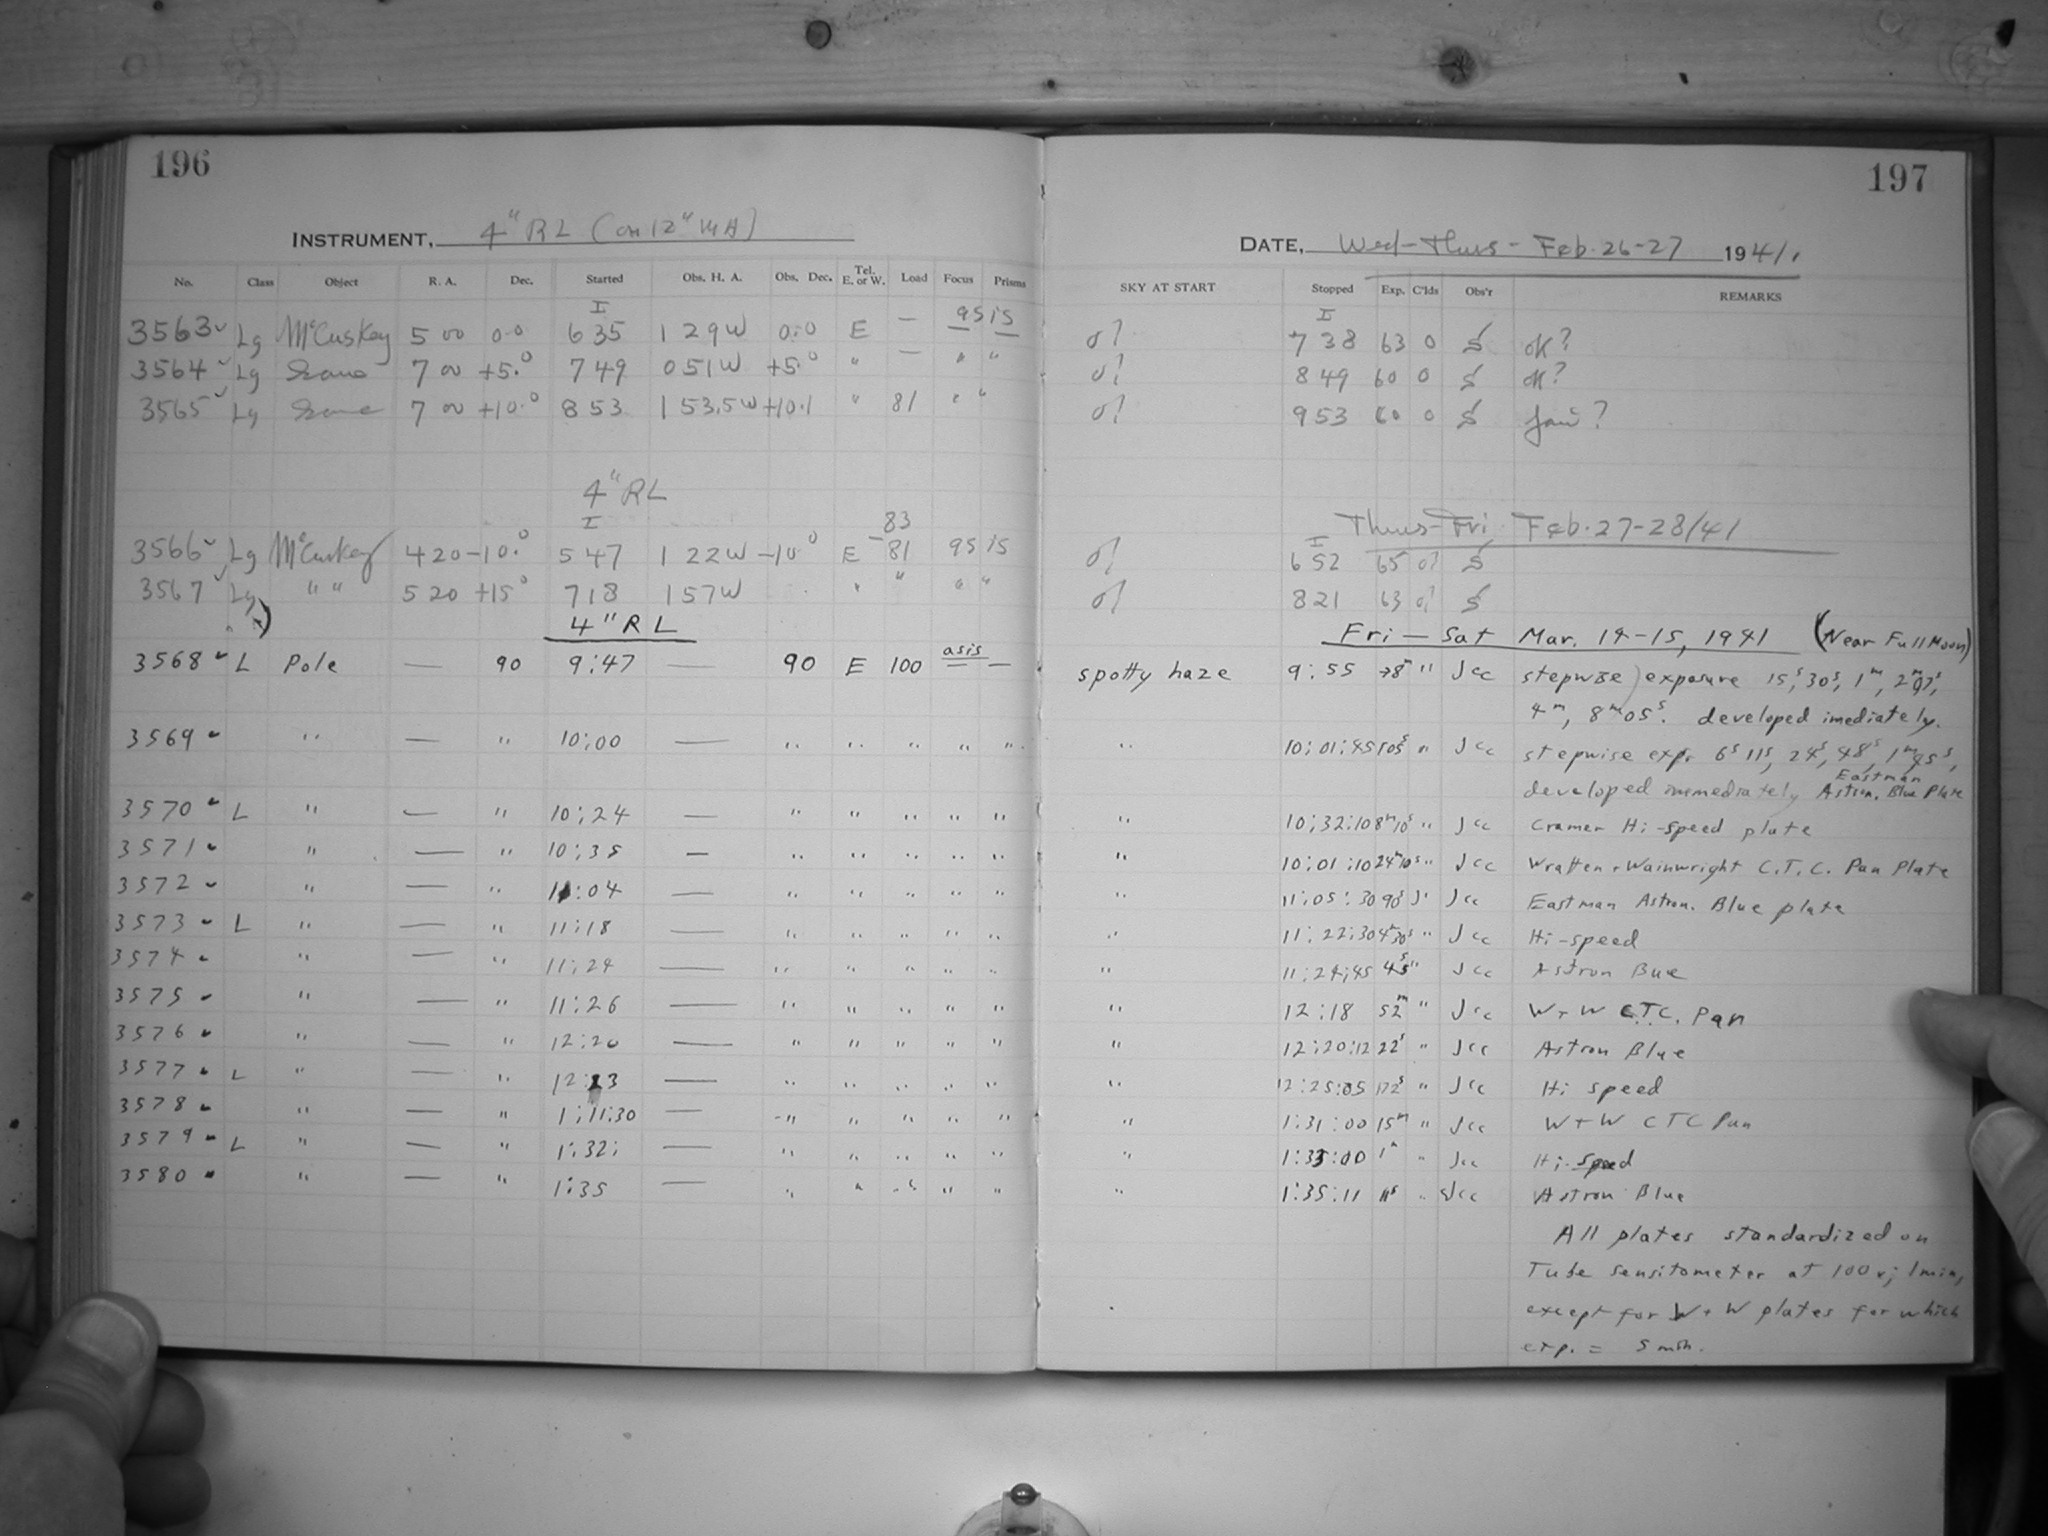 196
197
INSTRUMENT, 4" RL (on 12"
DATE, Wed-Thurs - Feb. 26-27 1941.
No. Class Object R. A. Dec. Started Obs. H. A. Obs. Dec. Tel. E. or W. Load Focus Prisms SKY AT START Stopped Exp. C'lds Obs'r REMARKS
I I
3563 Lg McCuskey 5 00 0.0 6 35 1 29W 0.0 E — 95 15 7 38 63 0 S OK?
3564 Lg 7 00 +5.° 7 49 0 51W +5.° " — " " 8 49 60 0 S OK?
3565 Lg 7 00 +10.° 8 53 1 53.5W +10.1 " 81 " " 9 53 60 0 S
4" RL
I I Thurs-Fri, Feb. 27-28/41
83
3566 Lg McCuskey 4 20 -10.° 5 47 1 22W -10° E 81 95 15 6 52 65 S
3567 Lg " " 5 20 +15° 7 18 1 57W " " " " 8 21 63 S
4" RL Fri — Sat Mar. 14-15, 1941 (Near Full Moon)
3568 L Pole — 90 9:47 — 90 E 100 asis — spotty haze 9:55 8m " Jcc stepwise exposure 15s, 30s, 1m,
4m, 8m05s. developed imediately.
3569 " — " 10:00 — " " " " " " 10:01:45 105s " Jcc stepwise exp. 6s 11s, 24s, 48s, 1m45s,
developed immediately Eastman Astron. Blue Plate
3570 L " — " 10:24 — " " " " " " 10:32:10 8m10s " Jcc Cramer Hi-speed plate
3571 " — " 10:35 — " " " " " " 10:01:10 24m10s " Jcc Wratten + Wainwright C.T.C. Pan Plate
3572 " — " 11:04 — " " " " " " 11:05:30 90s " Jcc Eastman Astron. Blue plate
3573 L " — " 11:18 — " " " " " " 11:22:30 4m30s " Jcc Hi-speed
3574 " — " 11:24 — " " " " " " 11:24:45 45s " Jcc Astron Bue
3575 " — " 11:26 — " " " " " " 12:18 52m " Jcc W+W C.T.C. Pan
3576 " — " 12:20 — " " " " " " 12:20:12 22s " Jcc Astron Blue
3577 L " — " — " " " " " " 12:25:05 172s " Jcc Hi speed
3578 " — " 1:11:30 — " " " " " " 1:31:00 15m " Jcc W+W CTC Pan
3579 L " — " 1:32: — " " " " " " 1:33:00 1m " Jcc Hi-speed
3580 " — " 1:35 — " " " " " " 1:35:11 11s " Jcc Astron Blue
All plates standardized on
Tube sensitometer at 100 v; 1 min,
except for W+W plates for which
exp. = 5 min.